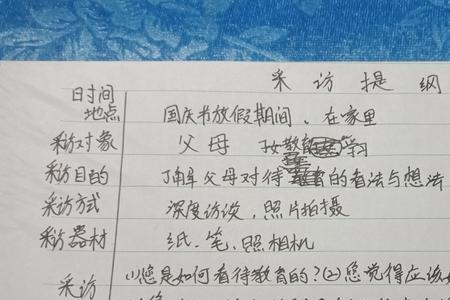 采访提纲
日时间
地点
国庆节放假期间、在家里
采访对象 父母
学习
采访目的 了解父母对待
的看法与想法
采访方式 深度访谈,照片拍摄
采访器材 纸、笔、照相机
采访 (1)您是如何看待教育的?(2)您觉得应该